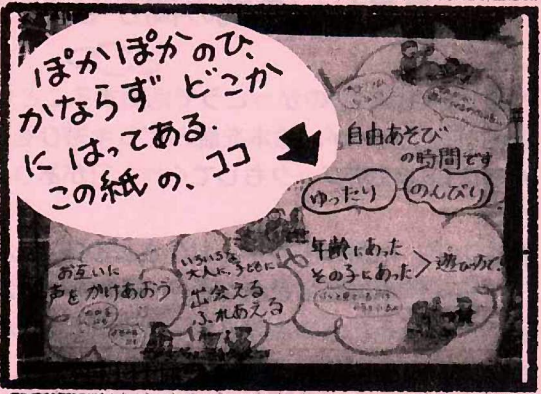 ぽかぽかのひ、
かならず どこか
に はってある.
この紙 の、ココ
自由あそび
の時間です
ゆったり
のんびり
お互いに
声をかけあおう
いろいろな
大人に、子どもに
出会える
ふれあえる
年齢にあった
その子にあった
遊びの